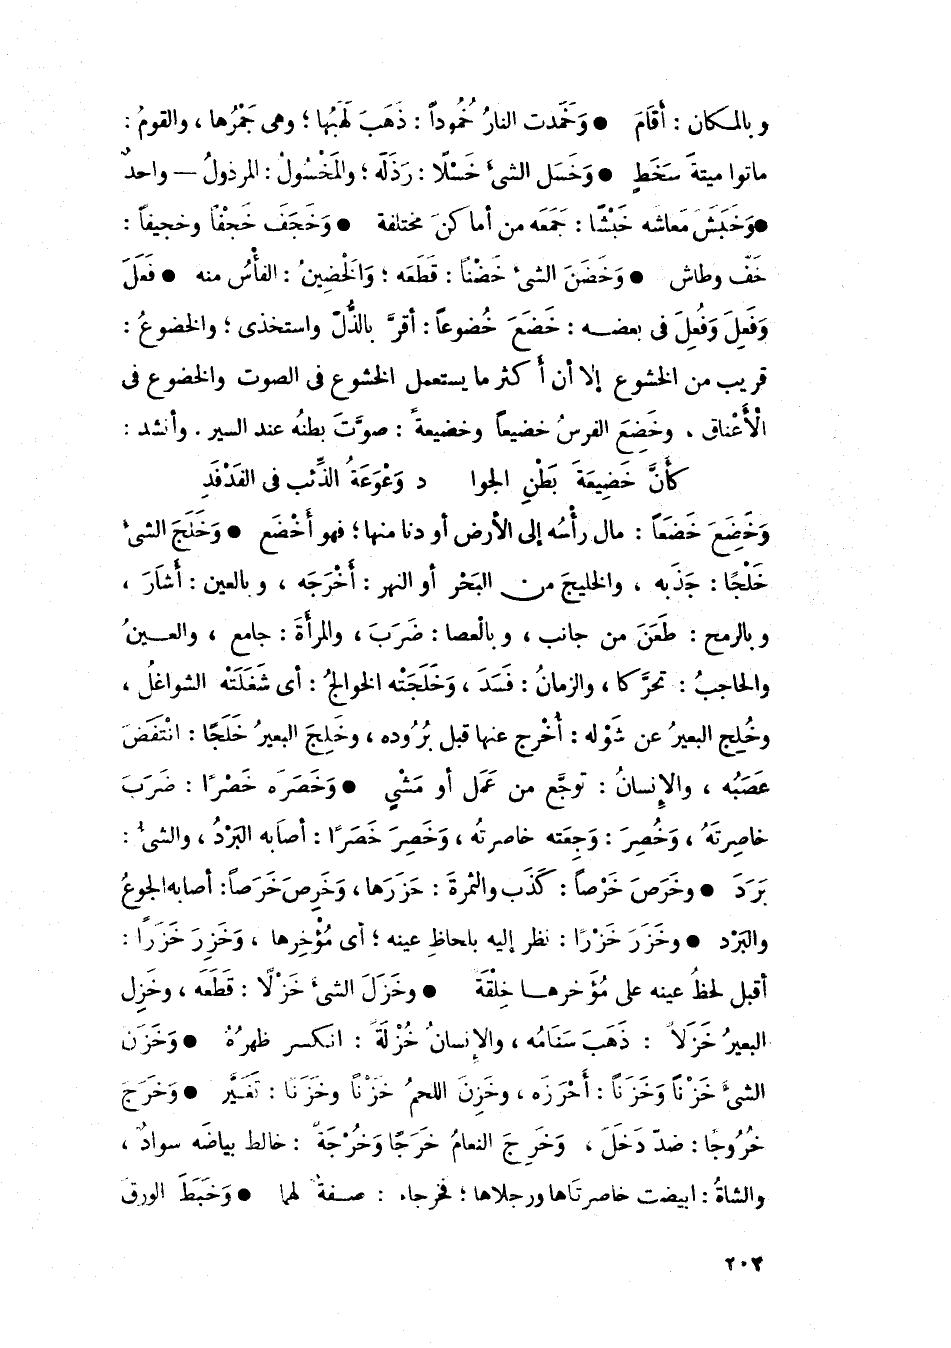 وبالمكان : أقَامَ ● وَخَمَدت النارُ خُمُوداً : ذَهَبَ لَهَبُها ؛ وهى جَمْرُها ، والقومُ :
ماتوا ميتةَ سَخَطٍ ● وَخَسَل الشىءَ خَسْلًا : رَذَلَه ؛ والمَخْسُولُ : المرذولُ — واحدٌ
● وَخَبَشَ مَعاشه خَبْشًا : جَمَعَه من أماكنَ مختلفة ● وَخَجَفَ خَجْفًا وخجيفاً :
خَفَّ وطاش ● وَخَضَنَ الشىءَ خَضْنًا : قَطَعَه ؛ وَالْخَضِينُ : الفأْسُ منه ● فَعَلَ
وَفَعِلَ وَفُعِلَ فى بعضه : خَضَعَ خُضوعاً : أقرَّ بالذُّلّ واستخذى ؛ والخضوعُ :
قريب من الخشوع إلا أن أكثر ما يستعمل الخشوع فى الصوت والخضوع فى
الْأَعْناق . وخَضِعَ الفرسُ خضيعاً وخضيعةً : صوَّتَ بطنُه عند السير . وأنشد :
كأَنَّ خَضِيعَةَ بَطْنِ الجوا د وَعْوَعَةُ الذِّئب فى الفَدْفَدِ
وَخَضِعَ خَضَعَاً : مال رأْسُه إلى الأرض أو دنا منها ؛ فهو أَخْضَع ● وَخَلَجَ الشىءَ
خَلْجًا : جَذَبه ، والخليجَ من البَحْر أو النهر : أَخْرَجَه ، وبالعين : أَشَارَ ،
وبالرمح : طَعَنَ من جانب ، وبالْعصا : ضَرَبَ ، والمرأَةَ : جامع ، والعينُ
والحاجبُ : تحرَّكا ، والزمانُ : فَسَدَ ، وَخَلَجَتْه الخوالجُ : أى شَغَلَتْه الشواغلُ ،
وخُلِج البعيرُ عن شَوْله : أُخْرج عنها قبل بُرُوده ، وخَلِجَ البعيرُ خَلَجًا : انْتَفَضَ
عَصَبُه ، والإنسانُ : توجَّع من عَمَل أو مَشْىٍ ● وَخَصَرَه خَصْرًا : ضَرَبَ
خاصِرتَهُ ، وَخُصِرَ : وَجِعَته خاصرتُه ، وَخَصِرَ خَصَرًا : أصابه البَرْدُ ، والشىءُ :
بَرَدَ ● وخَرَصَ خَرْصاً : كَذَب والثمرةَ : حَزَرَها ، وَخَرِصَ خَرَصاً : أصابه الجوعُ
والبَرْد ● وخَزَرَ خَزْرًا : نظر إليه بلحاظِ عينه ؛ أى مُؤْخِرها ، وَخَزِرَ خَزَرًا :
أقبل لحظُ عينه على مُؤَخرها خِلْقَةً ● وخَزَلَ الشىءَ خَزْلًا : قَطَعَه ، وخَزِل
البعيرُ خَزَلاً : ذَهَبَ سَنَامُه ، والإنسانُ خُزْلَةً : انكسر ظهرُهُ ● وَخَزَن
الشىءَ خَزْنًا وَخَزَنَاً : أَحْرَزَه ، وخَزِنَ اللحمُ خَزْنًا وخَزَنًا : تَغَيَّر ● وَخَرَجَ
خُرُوجًا : ضدّ دَخَلَ ، وَخَرِجَ النعامُ خَرَجًا وَخُرْجَةً : خالط بياضَه سوادٌ ،
والشاةُ : ابيضت خاصرتَاها ورجلاها ؛ فخرجاء : صفةٌ لهما ● وَخَبَطَ الورقَ
٢٠٣